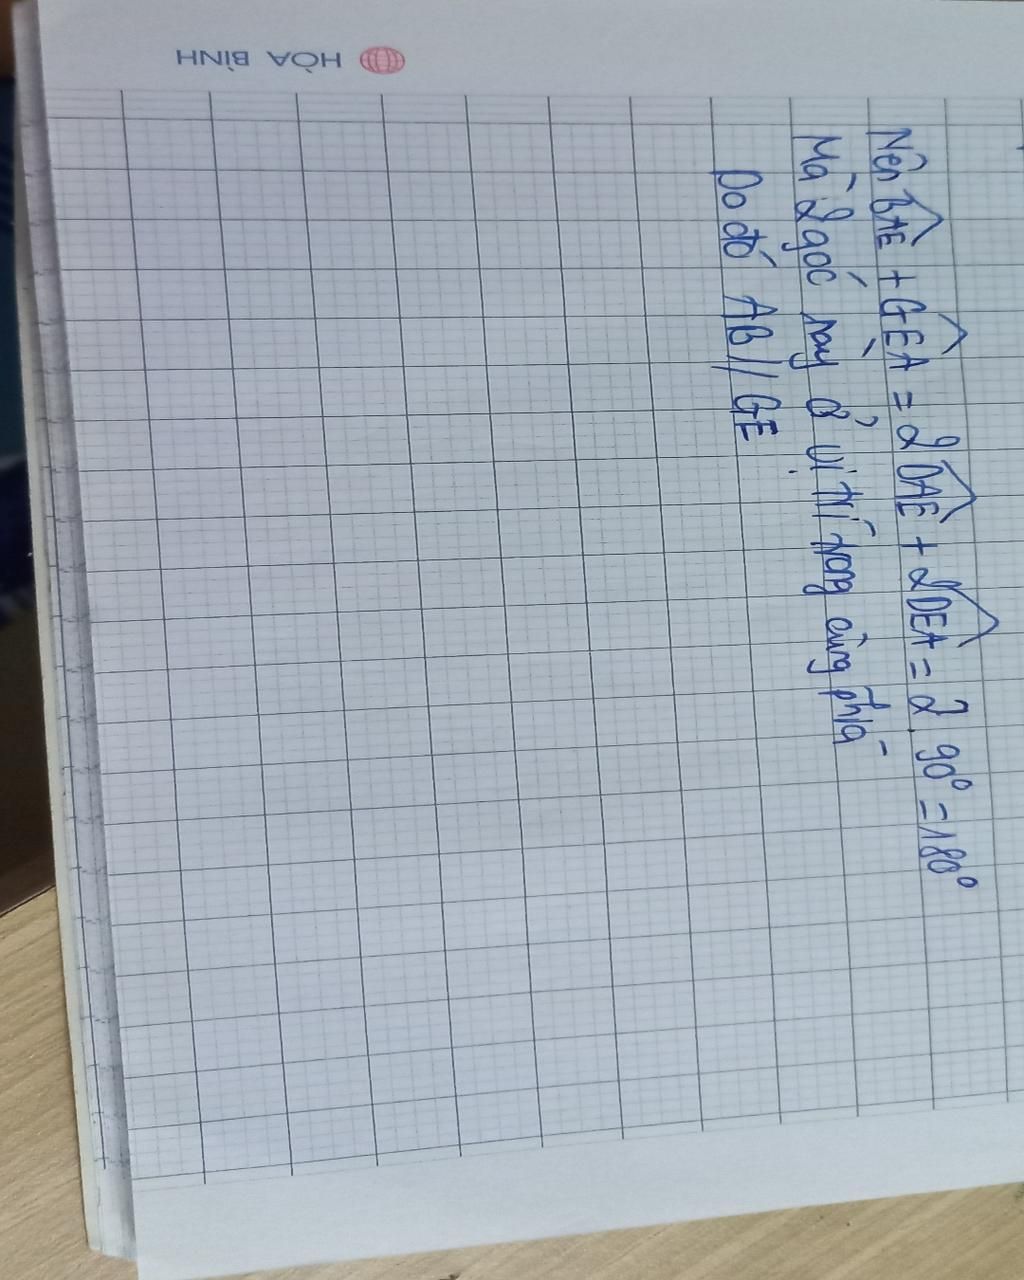 HÒA BÌNH
Nên \widehat{BAE} + \widehat{GEA} = 2\widehat{DAE} + 2\widehat{DEA} = 2.90° = 180°
Mà 2 góc này ở vị trí trong cùng phía
Do đó AB // GE